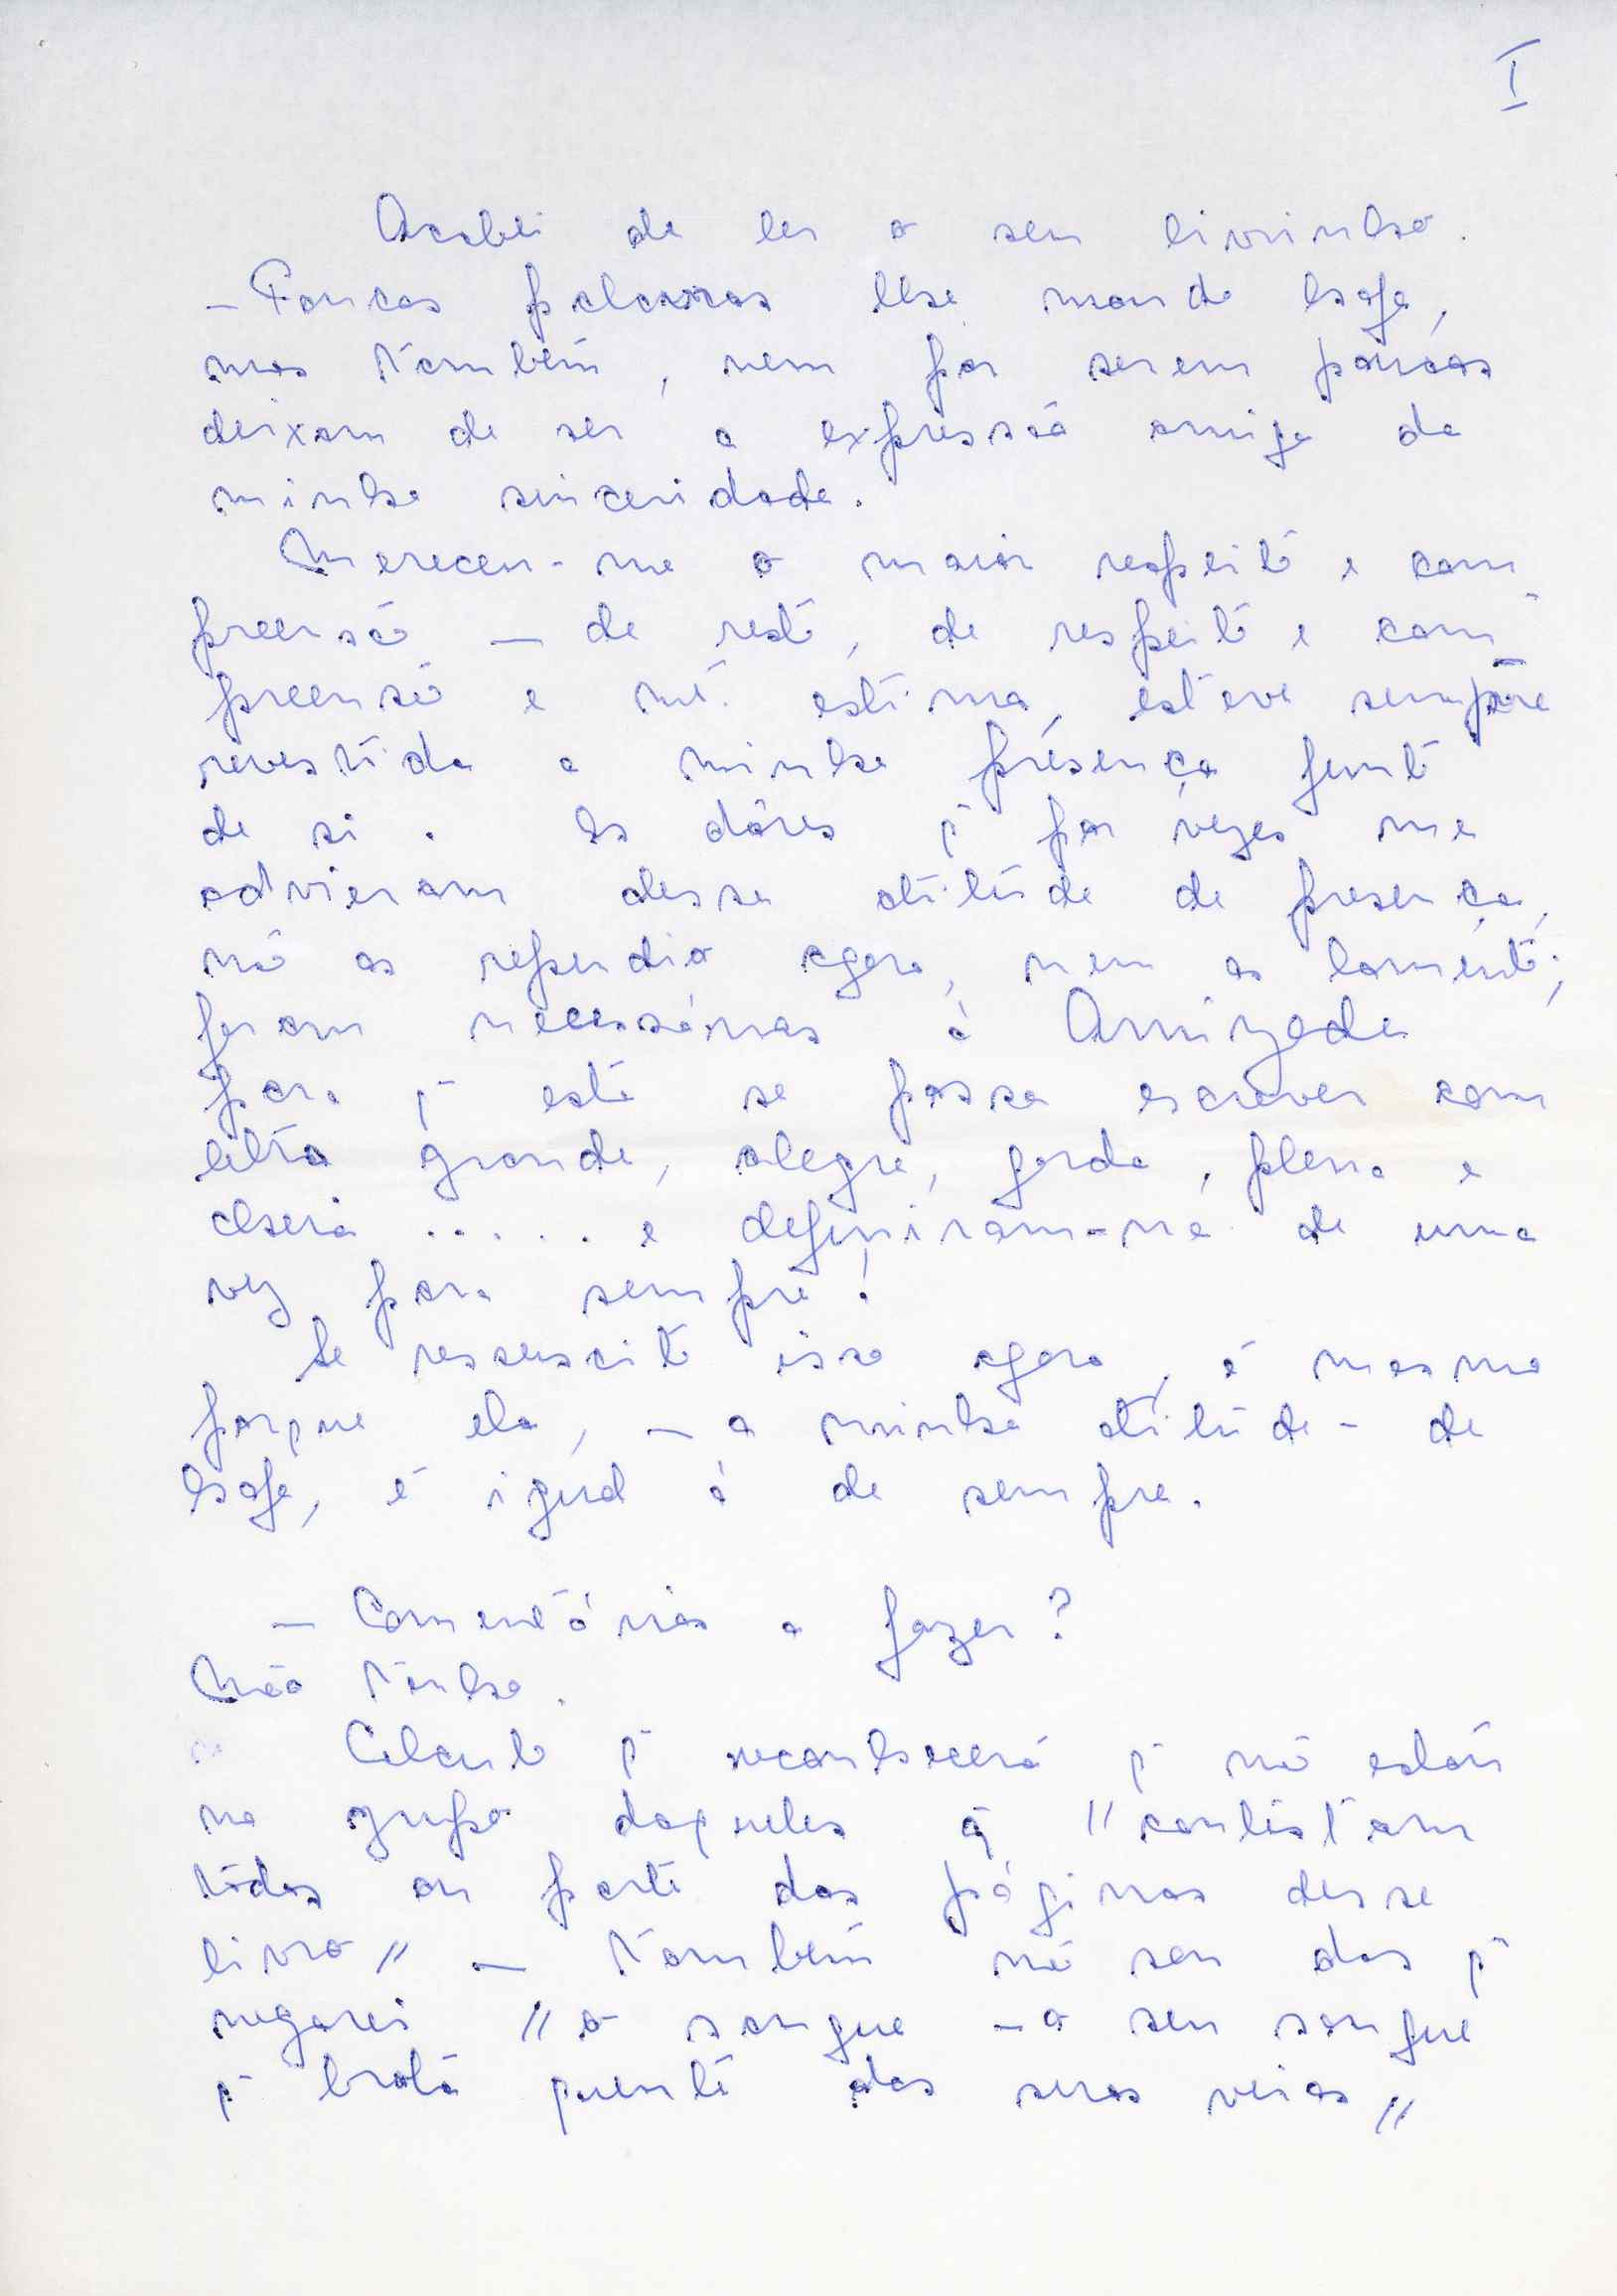 I
Acabei de ler o seu livrinho.
- Poucas palavras lhe mando hoje,
mas também, nem por serem poucas
deixam de ser a expressão amiga da
minha sinceridade.
Mereceu-me o maior respeito e com
preensão — de resto, de respeito e com
preensão e mt. estima, esteve sempre
revestida a minha presença junto
de si. As dôres q̃ por vezes me
advieram dessa atitude de presença,
não as repudio agora, nem as lamento;
foram necessárias à Amizade
para q̃ esta se possa escrever com
letra grande, alegre, gorda, plena e
cheia ..... e definiram-na de uma
vez para sempre!
Se ressuscito isso agora, é mesmo
porque ela, — a minha atitude - de
hoje, é igual à de sempre.
— Comentários a fazer?
Não tenho.
Calculo q̃ reconhecerá q̃ não estou
no grupo daqueles q̃ "contestam
todas ou parte das páginas desse
livro" — Também não sou dos q̃
negarei "o sangue - o seu sangue
q̃ brota quente das suas veias"